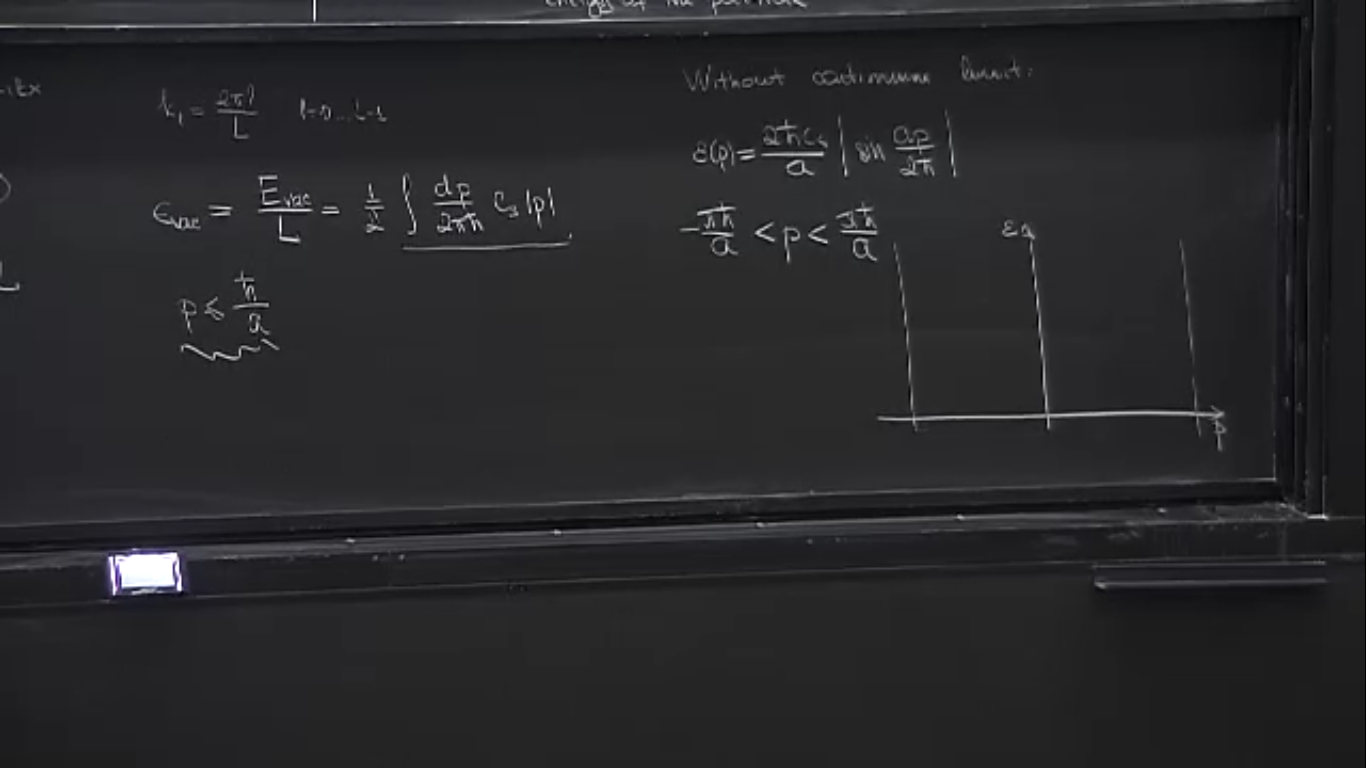 energy of the particle
k₁ = 2πl/L l=0...L-1
ϵ_vac = E_vac/L = 1/2 ∫ dp/2πħ c_s |p|
p ≤ ħ/a
Without continuum limit:
ε(p) = 2ħc_s/a |sin ap/2ħ|
-πħ/a < p < πħ/a
ε
p